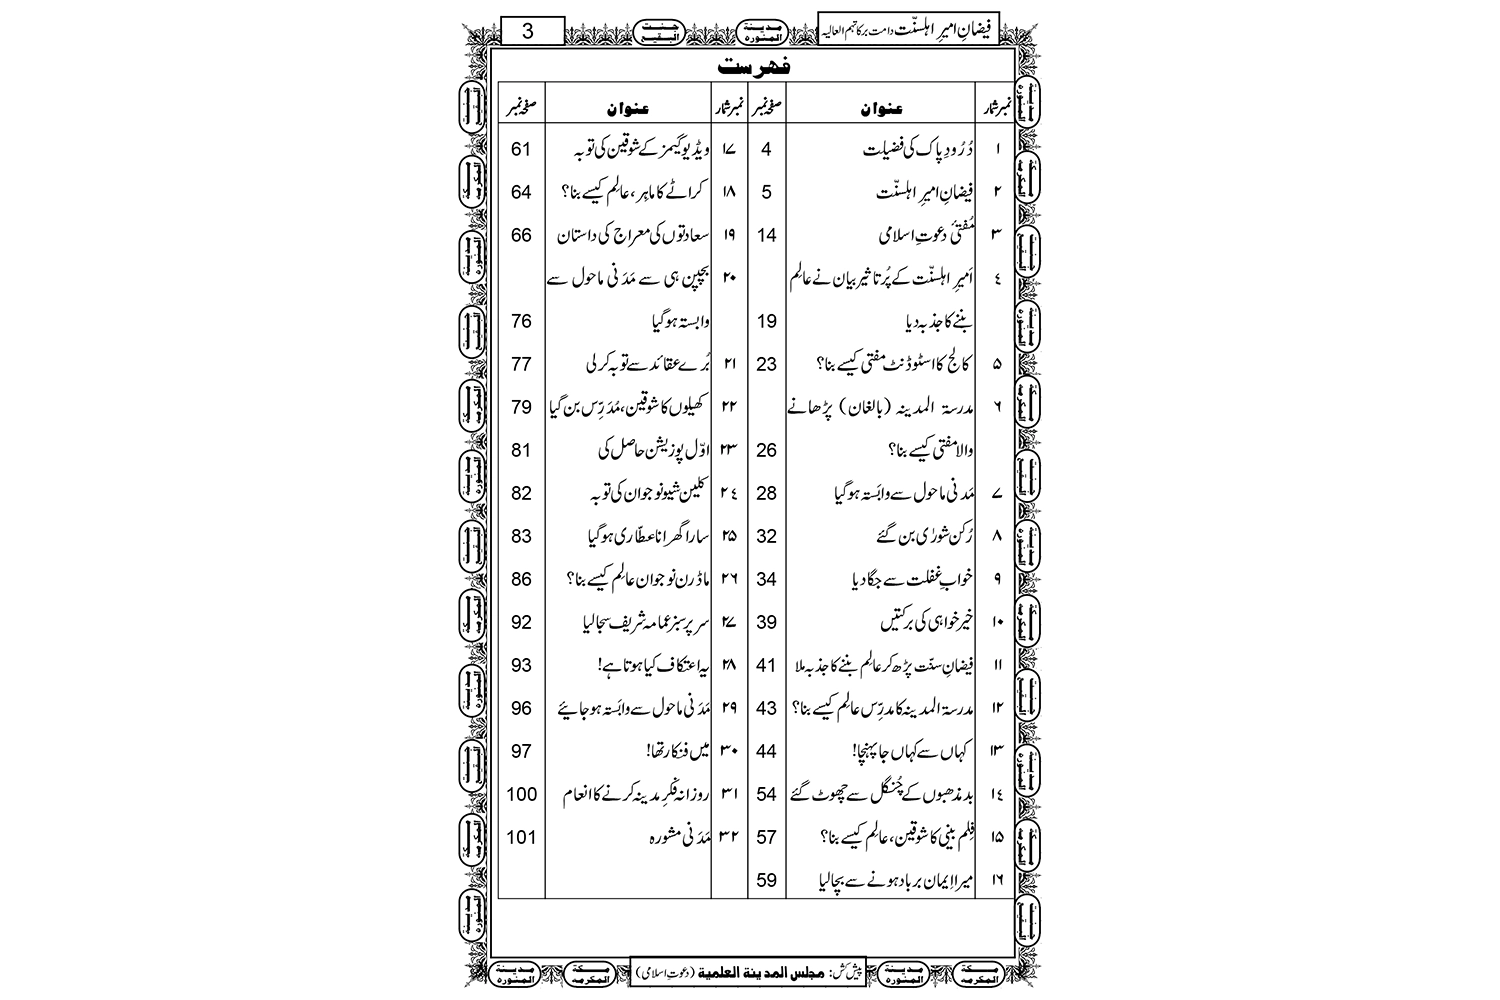 فیضانِ امیرِ اہلسنّت دامت برکاتہم العالیہ
3
جنت البقیع
مدینۃ المنورہ
فہرست
نمبر شمار عنوان صفحہ نمبر
۱ دُرُودِ پاک کی فضیلت 4
۲ فیضانِ امیرِ اہلسنّت 5
۳ مُفتیٔ دعوتِ اسلامی 14
٤ اَمیرِ اہلسنّت کے پُرتاثیر بیان نے عالِم
بننے کا جذبہ دیا 19
۵ کالج کا اسٹوڈنٹ مفتی کیسے بنا؟ 23
٦ مدرسۃ المدینہ (بالغان) پڑھانے
والا مفتی کیسے بنا؟ 26
۷ مَدَنی ماحول سے وابَستہ ہوگیا 28
۸ رُکنِ شوریٰ بن گئے 32
۹ خوابِ غفلت سے جگا دیا 34
۱۰ خیر خواہی کی برکتیں 39
۱۱ فیضانِ سنّت پڑھ کر عالِم بننے کا جذبہ ملا 41
۱۲ مدرسۃ المدینہ کا مدرِّس عالِم کیسے بنا؟ 43
۱۳ کہاں سے کہاں جا پہنچا! 44
۱٤ بدمذھبوں کے چُنگل سے چھوٹ گئے 54
۱۵ فِلم بینی کا شوقین، عالِم کیسے بنا؟ 57
۱٦ میرا اِیمان برباد ہونے سے بچالیا 59
نمبر شمار عنوان صفحہ نمبر
۱۷ ویڈیو گیمز کے شوقین کی توبہ 61
۱۸ کراٹے کا ماہِر، عالِم کیسے بنا؟ 64
۱۹ سعادتوں کی معراج کی داستان 66
۲۰ بچپن ہی سے مَدَنی ماحول سے
وابستہ ہوگیا 76
۲۱ بُرے عقائد سے توبہ کرلی 77
۲۲ کھیلوں کا شوقین، مُدَرِّس بن گیا 79
۲۳ اوّل پوزیشن حاصل کی 81
۲٤ کلین شیو نوجوان کی توبہ 82
۲۵ سارا گھرانا عطّاری ہوگیا 83
۲٦ ماڈرن نوجوان عالِم کیسے بنا؟ 86
۲۷ سر پر سبز عمامہ شریف سجالیا 92
۲۸ یہ اعتکاف کیا ہوتا ہے! 93
۲۹ مَدَنی ماحول سے وابَستہ ہوجایئے 96
۳۰ میں فنکار تھا! 97
۳۱ روزانہ فکرِ مدینہ کرنے کا انعام 100
۳۲ مَدَنی مشورہ 101
پیش کش: مجلس المدینۃ العلمیۃ (دعوتِ اسلامی)
مدینۃ المنورہ
مکۃ المکرمہ